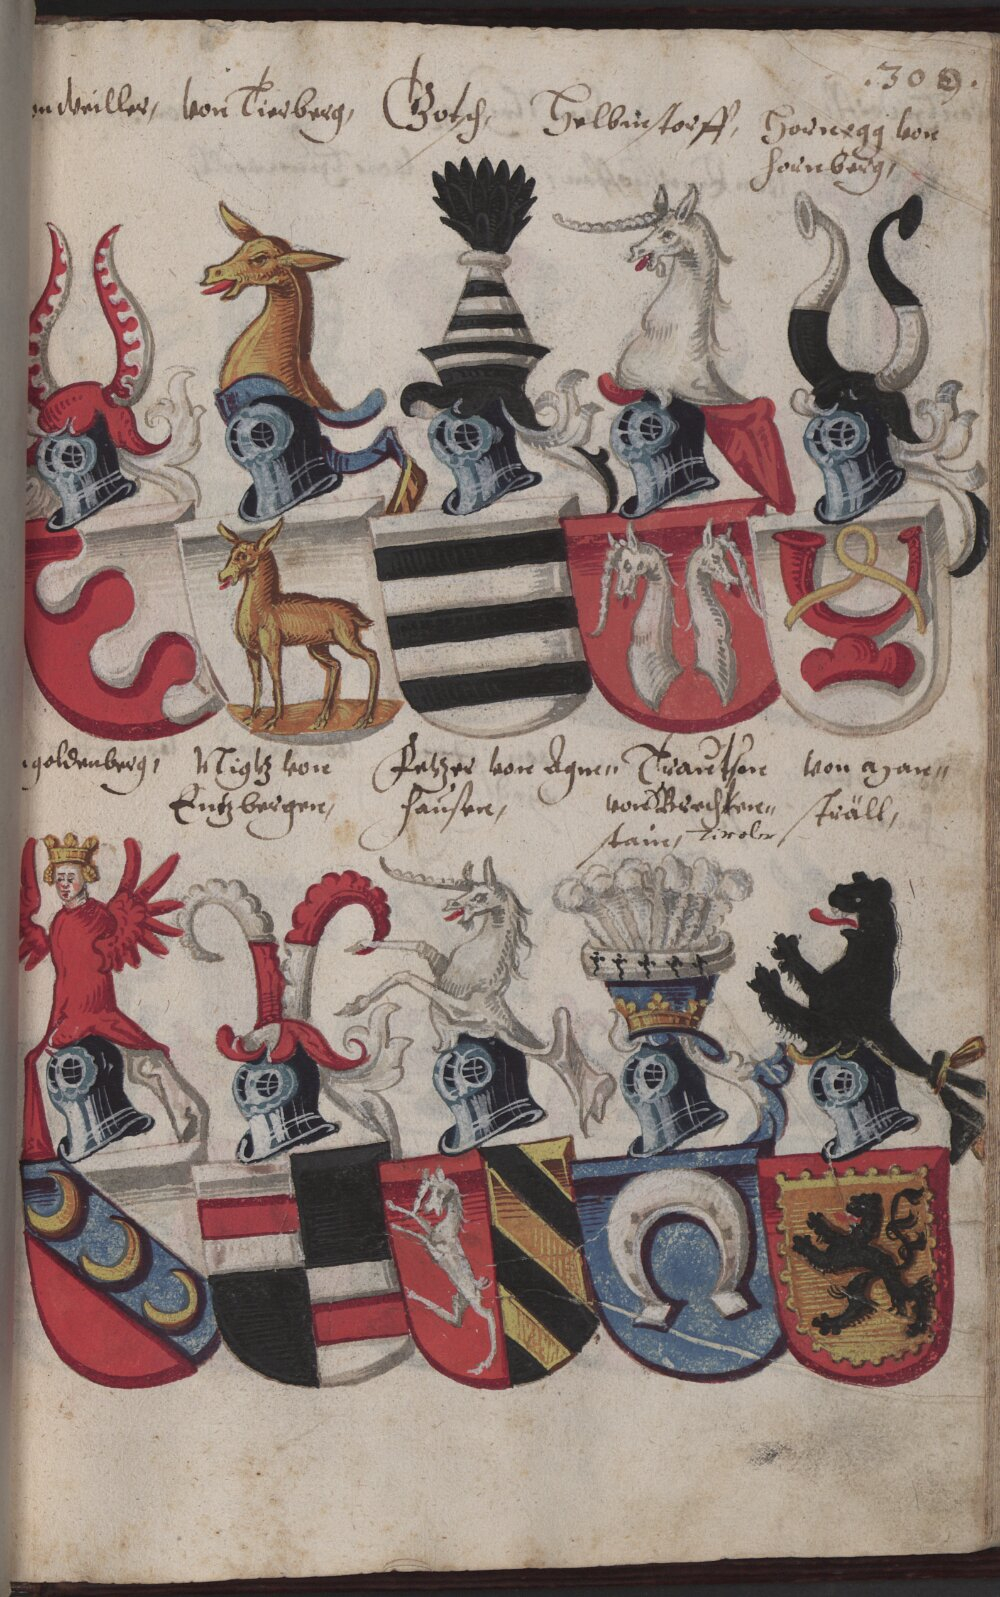 .309.
weiller, von Tierberg, Gotsch, Helbmstorff, Hornegg von
hornberg,
goldenberg, Nigtz von Entzbergen,
Petzer von Agn=
hausen,
Trautson
von Brechten=
stain, Tiroler
von Man=
sträll,